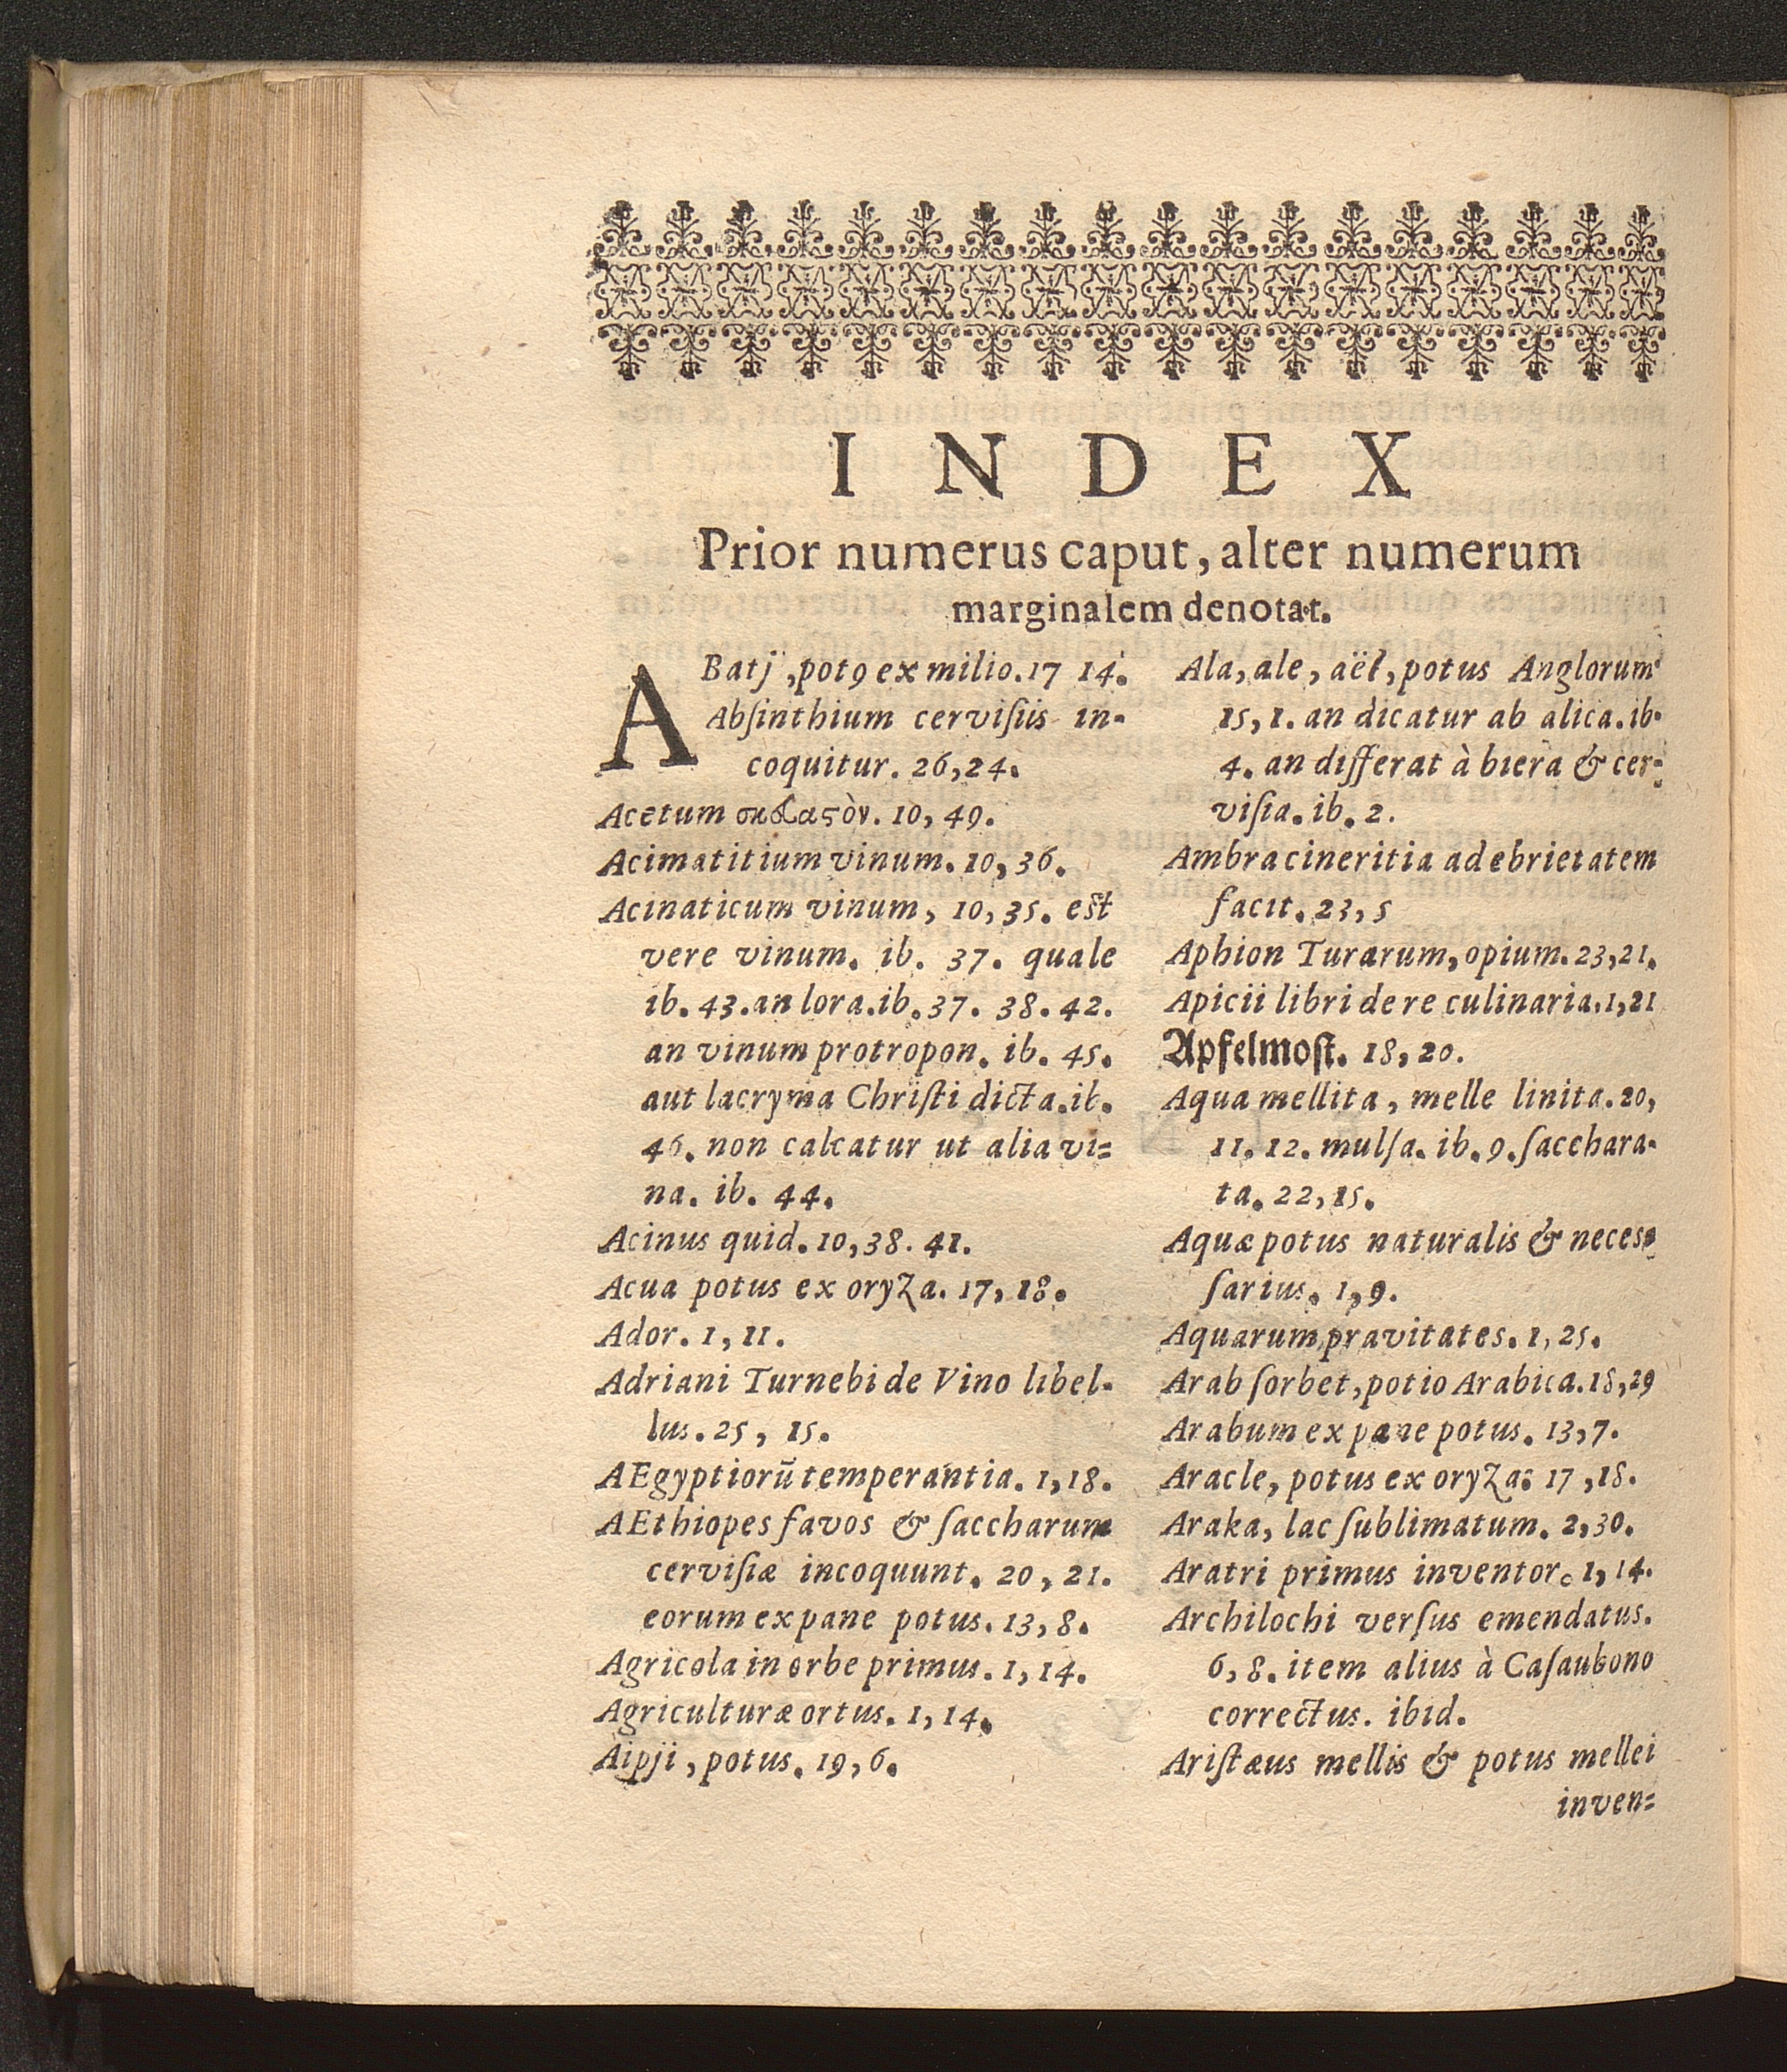 INDEX
Prior numerus caput, alter numerum
marginalem denotat.
ABatj, potꝰ ex milio. 17 14.
Abſinthium cerviſiis in-
coquitur. 26, 24.
Acetum 10, 49.
Acimatitium vinum. 10, 36.
Acinaticum vinum, 10, 35. est
vere vinum. ib. 37. quale
ib. 43. an lora. ib. 37. 38. 42.
an vinum protropon. ib. 45.
aut lacryma Chriſti dicta. ib.
46. non calcatur ut alia vi=
na. ib. 44.
Acinus quid. 10, 38. 41.
Acua potus ex oryza. 17, 18.
Ador. 1, 11.
Adriani Turnebi de Vino libel-
lus. 25, 15.
AEgyptiorũ temperantia. 1, 18.
AEthiopes favos & ſaccharum
cerviſiæ incoquunt. 20, 21.
eorum ex pane potus. 13, 8.
Agricola in orbe primus. 1, 14.
Agriculturæ ortus. 1, 14.
Aipji, potus. 19, 6.
Ala, ale, aël, potus Anglorum
15, 1. an dicatur ab alica. ib.
4. an differat à biera & cer=
viſia. ib. 2.
Ambra cineritia ad ebrietatem
facit. 23, 5
Aphion Turarum, opium. 23, 21.
Apicii libri de re culinaria. 1, 21
Apfelmoſt. 18, 20.
Aqua mellita, melle linita. 20,
11. 12. mulſa. ib. 9. ſacehara-
ta. 22, 15.
Aquæ potus naturalis & neceſ=
ſarius. 1, 9.
Aquarum pravitates. 1, 25.
Arab ſorbet, potio Arabica. 18, 29
Arabum ex pane potus. 13, 7.
Aracle, potus ex oryza: 17, 18.
Araka, lac ſublimatum. 2, 30.
Aratri primus inventor. 1, 14.
Archilochi verſus emendatus.
6, 8. item alius à Caſaubono
correctus. ibid.
Ariſtæus mellis & potus mellei
inven=